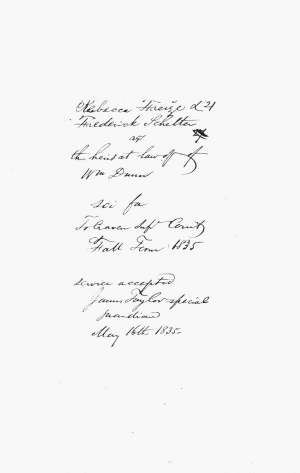 Rebecca Freize & 21
Frederick Shelter
agt
the heirs at law of
Wm Dunn
sci fa
To Craven Supr Court
Fall Term 1835
service accepted
James Taylor special
guardian
May 16th 1835